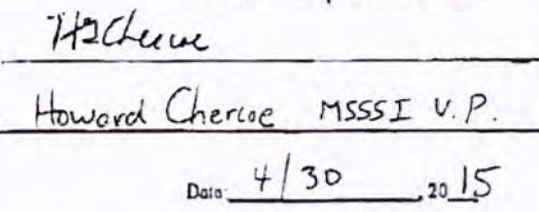 Howard Chercoe MSSSI V.P.
Date: 4/30, 2015